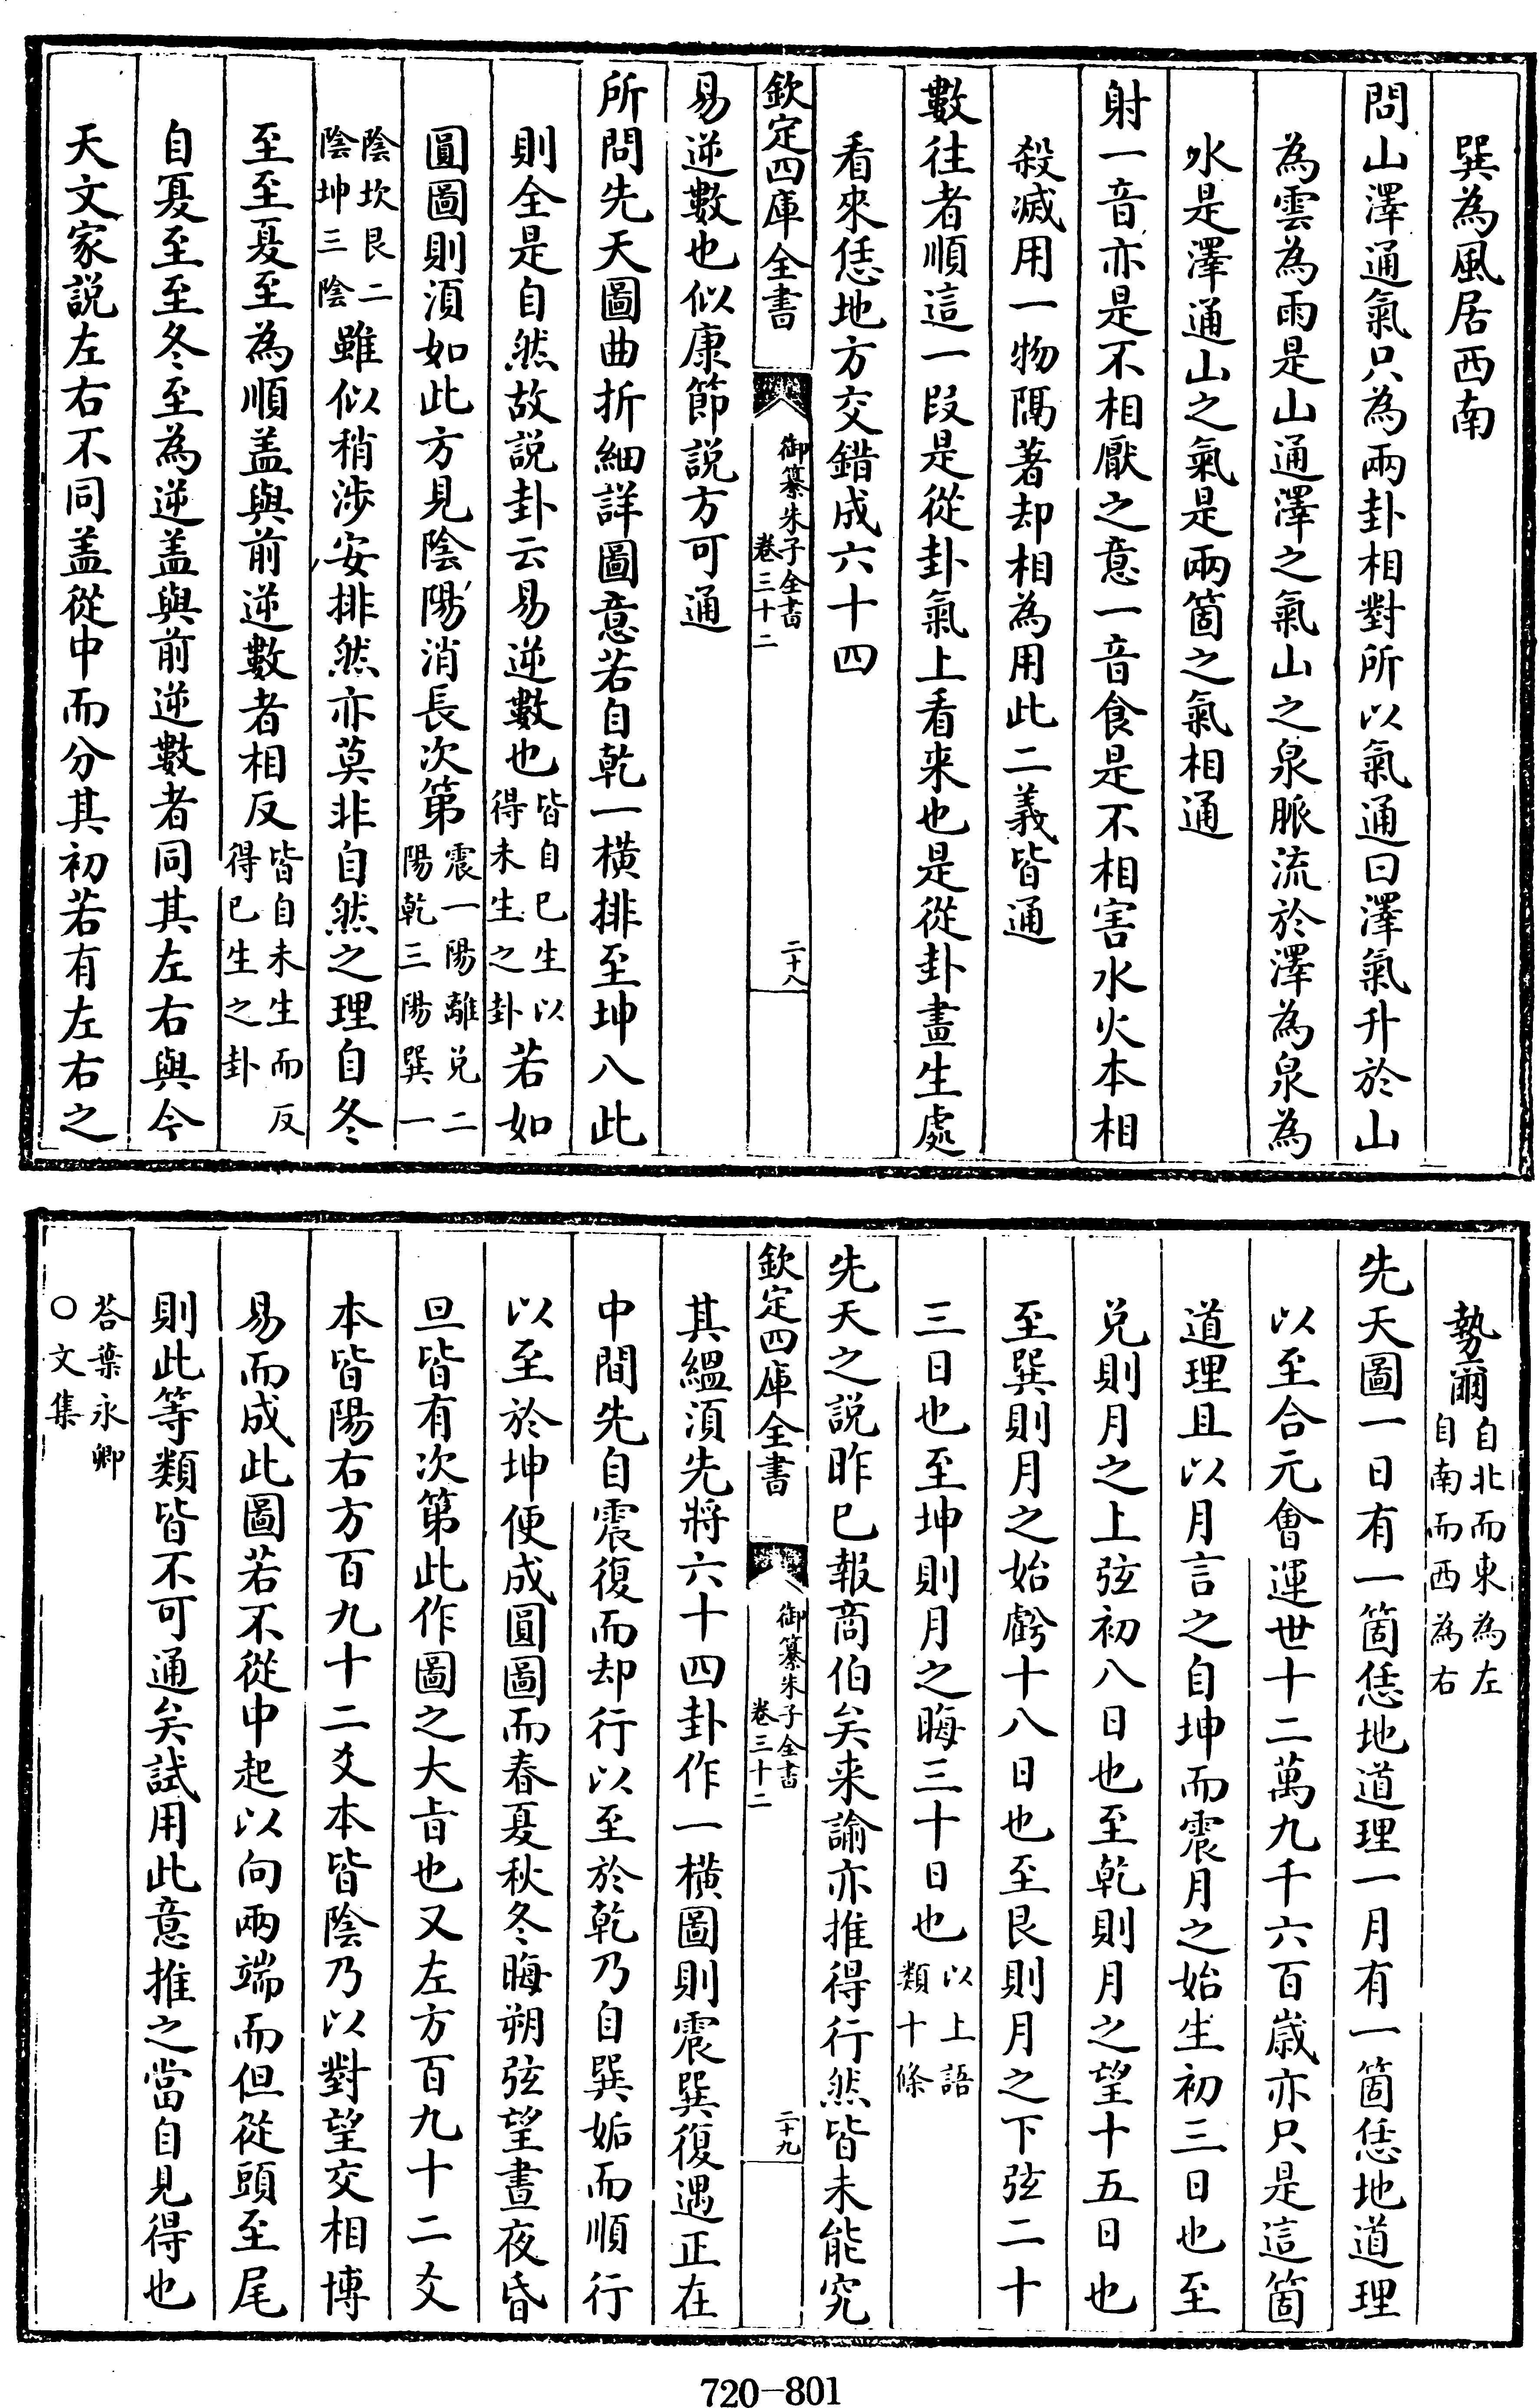 巽為風居西南
問山澤通氣只為兩卦相對所以氣通曰澤氣升於山
為雲為雨是山通澤之氣山之泉脈流於澤為泉為
水是澤通山之氣是兩箇之氣相通
射一音亦是不相厭之意一音食是不相害水火本相
殺滅用一物隔著却相為用此二義皆通
數往者順這一段是從卦氣上看来也是從卦畫生處
看來恁地方交錯成六十四
欽定四庫全書
御纂朱子全書
卷三十二
二十八
易逆數也似康節説方可通
所問先天圖曲折細詳圖意若自乾一橫排至坤八此
則全是自然故説卦云易逆數也皆自已生以
得未生之卦若如
圓圖則湏如此方見陰陽消長次第震一陽離兑二
陽乾三陽巽一
陰坎艮二
陰坤三陰雖似稍涉安排然亦莫非自然之理自冬
至至夏至為順盖與前逆數者相反皆自未生而反
得已生之卦
自夏至至冬至為逆盖與前逆數者同其左右與今
天文家説左右不同盖從中而分其初若有左右之
勢爾自北而東為左
自南而西為右
先天圖一日有一箇恁地道理一月有一箇恁地道理
以至合元會運世十二萬九千六百歲亦只是這箇
道理且以月言之自坤而震月之始生初三日也至
兑則月之上弦初八日也至乾則月之望十五日也
至巽則月之始虧十八日也至艮則月之下弦二十
三日也至坤則月之晦三十日也以上語
類十條
先天之説昨已報商伯矣来諭亦推得行然皆未能究
欽定四庫全書
御纂朱子全書
卷三十二
二十九
其緼湏先將六十四卦作一橫圖則震巽復遇正在
中間先自震復而却行以至於乾乃自巽姤而順行
以至於坤便成圓圖而春夏秋冬晦朔弦望晝夜昏
旦皆有次第此作圖之大㫖也又左方百九十二爻
本皆陽右方百九十二爻本皆陰乃以對望交相博
易而成此圖若不從中起以向兩端而但從頭至尾
則此等類皆不可通矣試用此意推之當自見得也
荅葉永卿
○文集
720-801